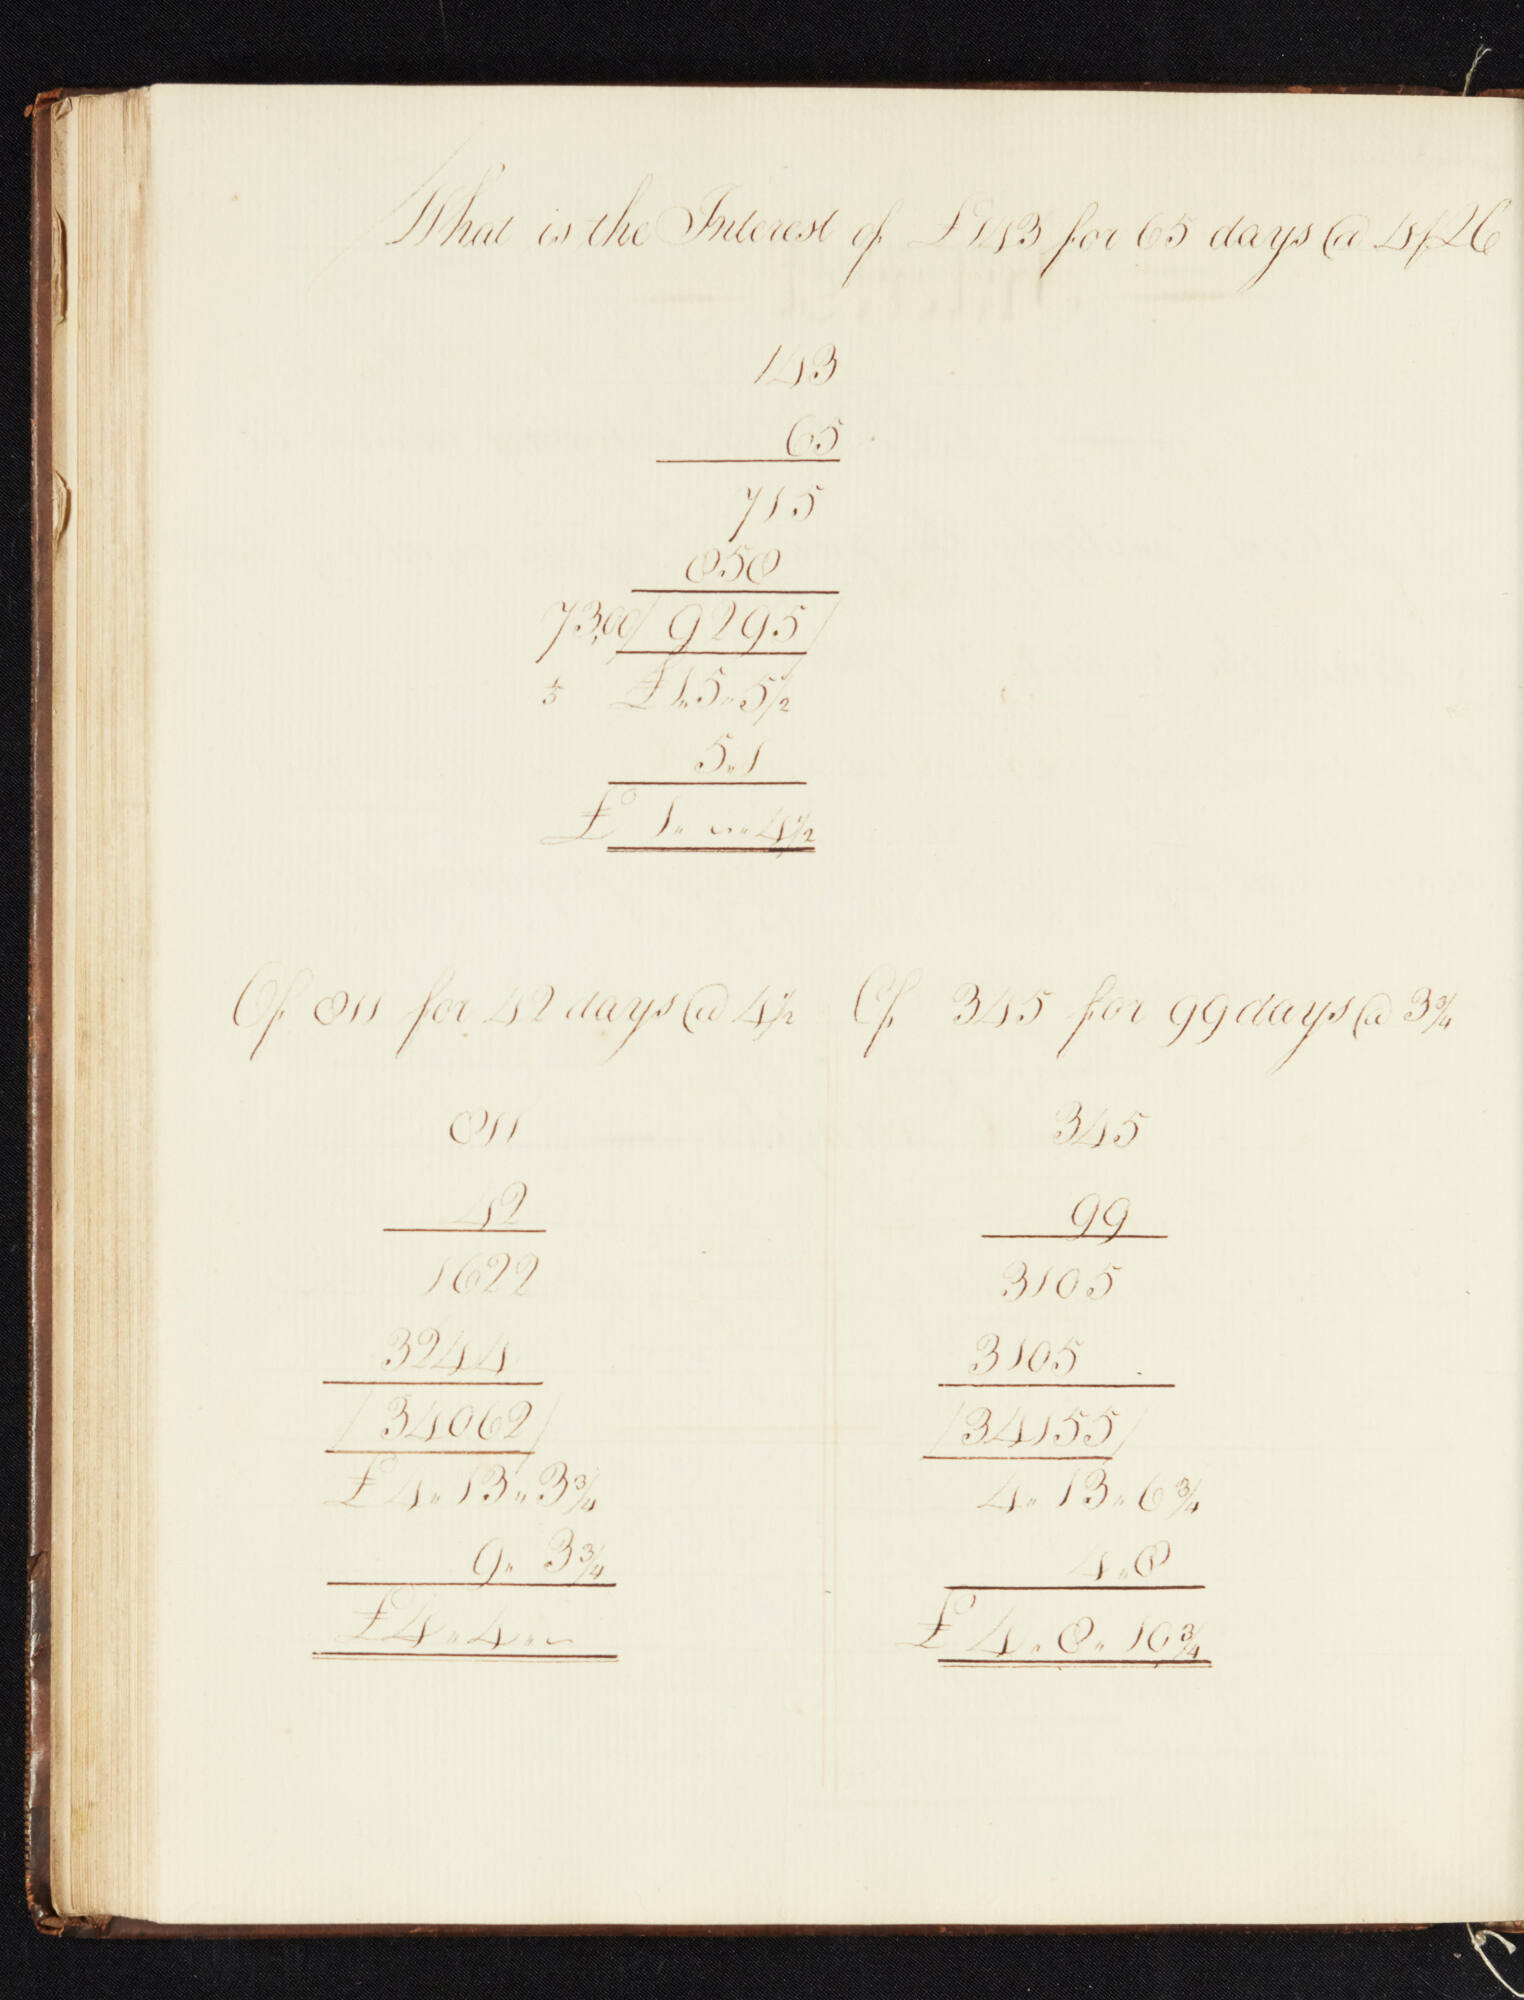 What is the Interest of £143 for 65 days @ 4 p% C
143
65
715
858
73,00/ 9295/
1/5 £1"5"5 1/2
5"1
£ 1"~"4 1/2
Of 811 for 42 days @ 4 1/2
811
42
1622
3244
/34062/
£4"13"3 3/4
9"3 3/4
£4"4"~
Of 345 for 99 days @ 3 3/4
345
99
3105
3105
/34155/
4"13"6 3/4
4"8
£ 4"8"10 3/4